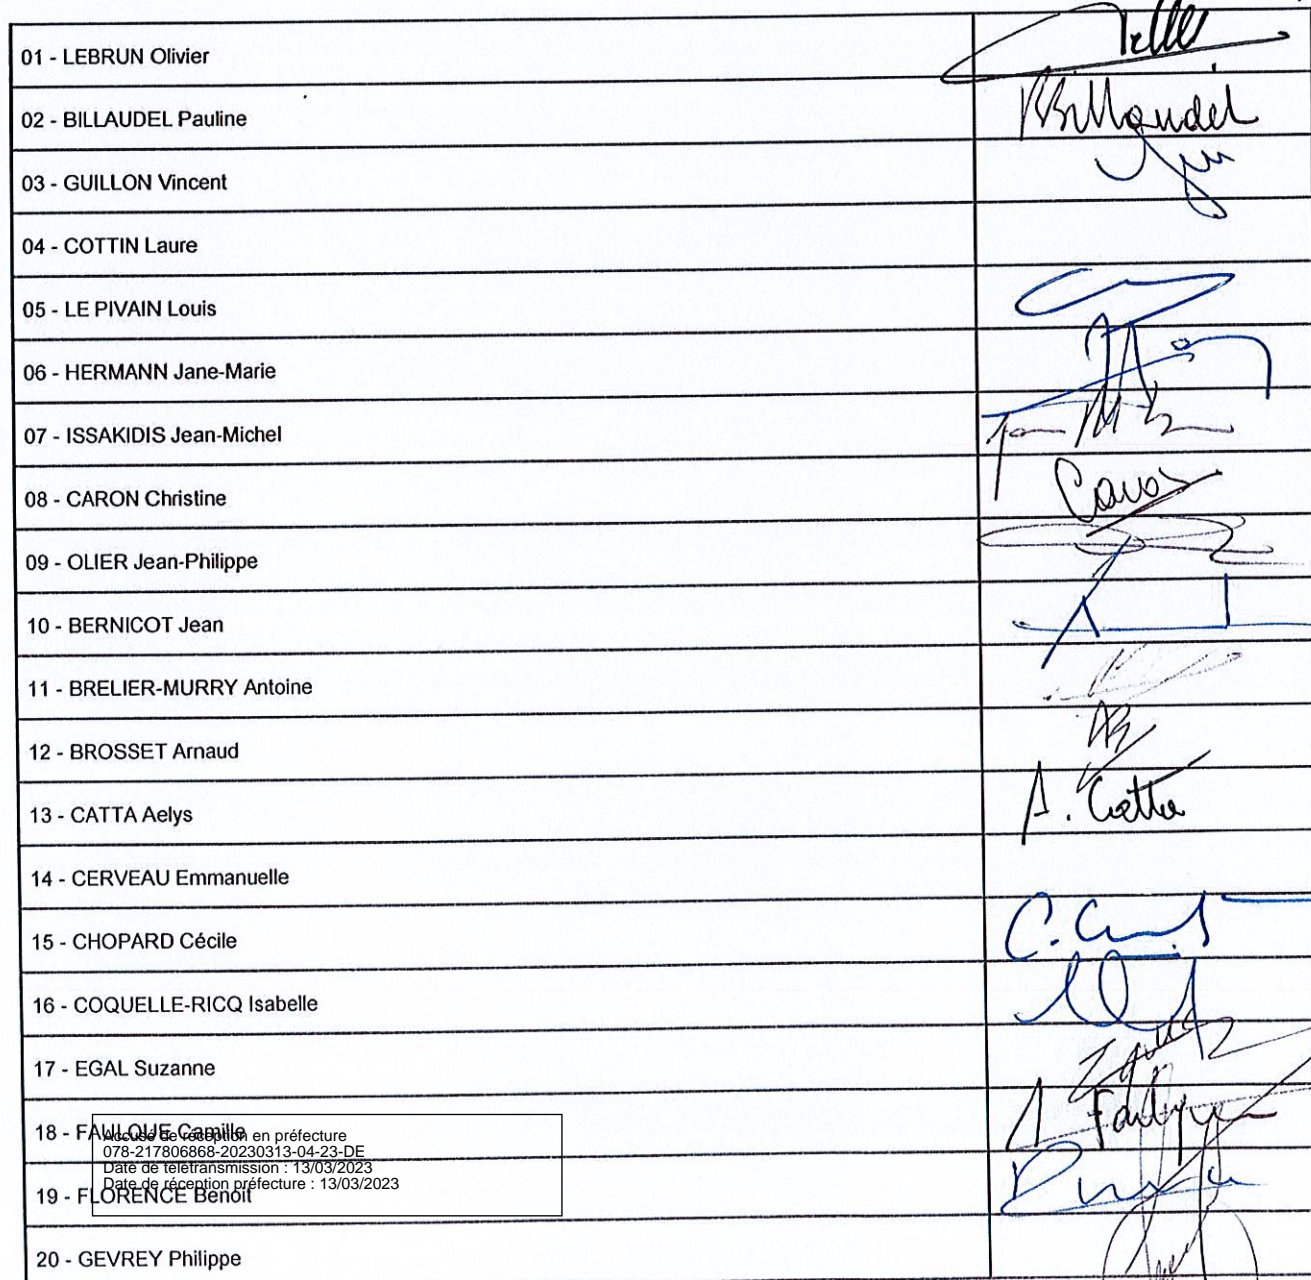 01 - LEBRUN Olivier
02 - BILLAUDEL Pauline
Billaudel
03 - GUILLON Vincent
04 - COTTIN Laure
05 - LE PIVAIN Louis
06 - HERMANN Jane-Marie
07 - ISSAKIDIS Jean-Michel
08 - CARON Christine
Caron
09 - OLIER Jean-Philippe
10 - BERNICOT Jean
11 - BRELIER-MURRY Antoine
12 - BROSSET Arnaud
13 - CATTA Aelys
A. Catta
14 - CERVEAU Emmanuelle
15 - CHOPARD Cécile
16 - COQUELLE-RICQ Isabelle
17 - EGAL Suzanne
18 - FAULQUE Camille
Accusé de réception en préfecture
078-217806868-20230313-04-23-DE
Date de télétransmission : 13/03/2023
Date de réception préfecture : 13/03/2023
19 - FLORENCE Benoit
20 - GEVREY Philippe